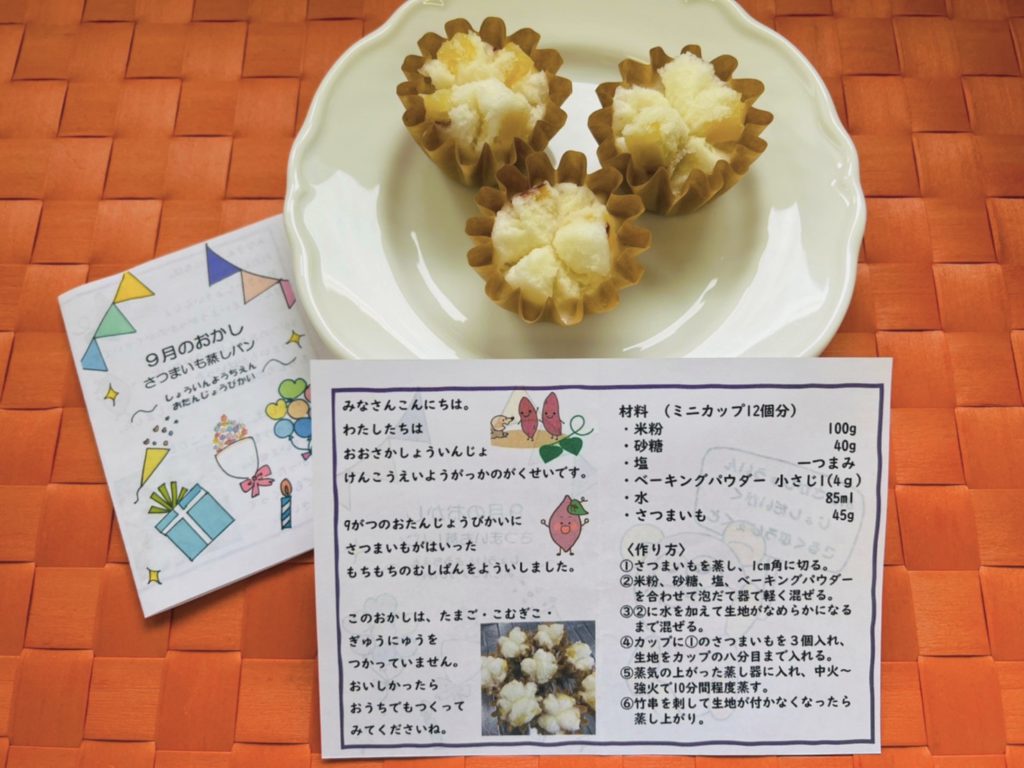 9月のおかし
さつまいも蒸しパン
しょういんようちえん
おたんじょうびかい
みなさんこんにちは。
わたしたちは
おおさかしょういんじょ
けんこうえいようがっかのがくせいです。
9がつのおたんじょうびかいに
さつまいもがはいった
もちもちのむしぱんをよういしました。
このおかしは、たまご・こむぎこ・
ぎゅうにゅうを
つかっていません。
おいしかったら
おうちでもつくって
みてくださいね。
材料 （ミニカップ12個分）
・米粉 100g
・砂糖 40g
・塩 一つまみ
・ベーキングパウダー 小さじ1(4g)
・水 85ml
・さつまいも 45g
〈作り方〉
①さつまいもを蒸し、1cm角に切る。
②米粉、砂糖、塩、ベーキングパウダー
を合わせて泡だて器で軽く混ぜる。
③②に水を加えて生地がなめらかになる
まで混ぜる。
④カップに①のさつまいもを３個入れ、
生地をカップの八分目まで入れる。
⑤蒸気の上がった蒸し器に入れ、中火～
強火で10分間程度蒸す。
⑥竹串を刺して生地が付かなくなったら
蒸し上がり。